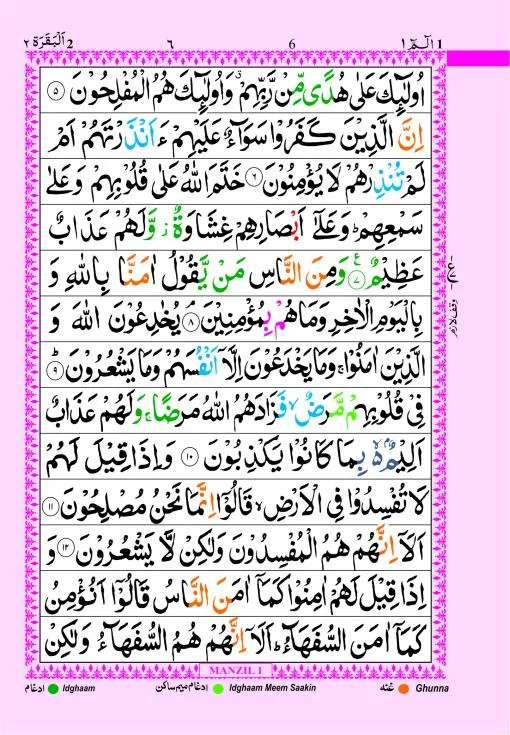 2 اَلْبَقَرَة ٢ ٦ 6 1 الٓمّٓ ١
اُولٰٓئِكَ عَلٰى هُدًى مِّنْ رَّبِّهِمْ ۙ وَاُولٰٓئِكَ هُمُ الْمُفْلِحُوْنَ ۝٥
اِنَّ الَّذِيْنَ كَفَرُوْا سَوَآءٌ عَلَيْهِمْ ءَاَنْذَرْتَهُمْ اَمْ
لَمْ تُنْذِرْهُمْ لَا يُؤْمِنُوْنَ ۝٦ خَتَمَ اللّٰهُ عَلٰى قُلُوْبِهِمْ وَعَلٰى
سَمْعِهِمْ ؕ وَعَلٰٓى اَبْصَارِهِمْ غِشَاوَةٌ ؗ وَّلَهُمْ عَذَابٌ
عَظِيْمٌ ۝٧ وَمِنَ النَّاسِ مَنْ يَّقُوْلُ اٰمَنَّا بِاللّٰهِ وَ
بِالْيَوْمِ الْاٰخِرِ وَمَا هُمْ بِمُؤْمِنِيْنَ ۝٨ يُخٰدِعُوْنَ اللّٰهَ وَ
الَّذِيْنَ اٰمَنُوْا ۚ وَمَا يَخْدَعُوْنَ اِلَّآ اَنْفُسَهُمْ وَمَا يَشْعُرُوْنَ ۝٩ؕ
فِيْ قُلُوْبِهِمْ مَّرَضٌ ۙ فَزَادَهُمُ اللّٰهُ مَرَضًا ۚ وَلَهُمْ عَذَابٌ
اَلِيْمٌۢ ۙ۬ بِمَا كَانُوْا يَكْذِبُوْنَ ۝١٠ وَاِذَا قِيْلَ لَهُمْ
لَا تُفْسِدُوْا فِي الْاَرْضِ ۙ قَالُوْٓا اِنَّمَا نَحْنُ مُصْلِحُوْنَ ۝١١
اَلَآ اِنَّهُمْ هُمُ الْمُفْسِدُوْنَ وَلٰكِنْ لَّا يَشْعُرُوْنَ ۝١٢ وَ
اِذَا قِيْلَ لَهُمْ اٰمِنُوْا كَمَآ اٰمَنَ النَّاسُ قَالُوْٓا اَنُؤْمِنُ
كَمَآ اٰمَنَ السُّفَهَآءُ ؕ اَلَآ اِنَّهُمْ هُمُ السُّفَهَآءُ وَلٰكِنْ
وقف لازم
MANZIL 1
ادغام Idghaam ادغام میم ساکن Idghaam Meem Saakin غنه Ghunna